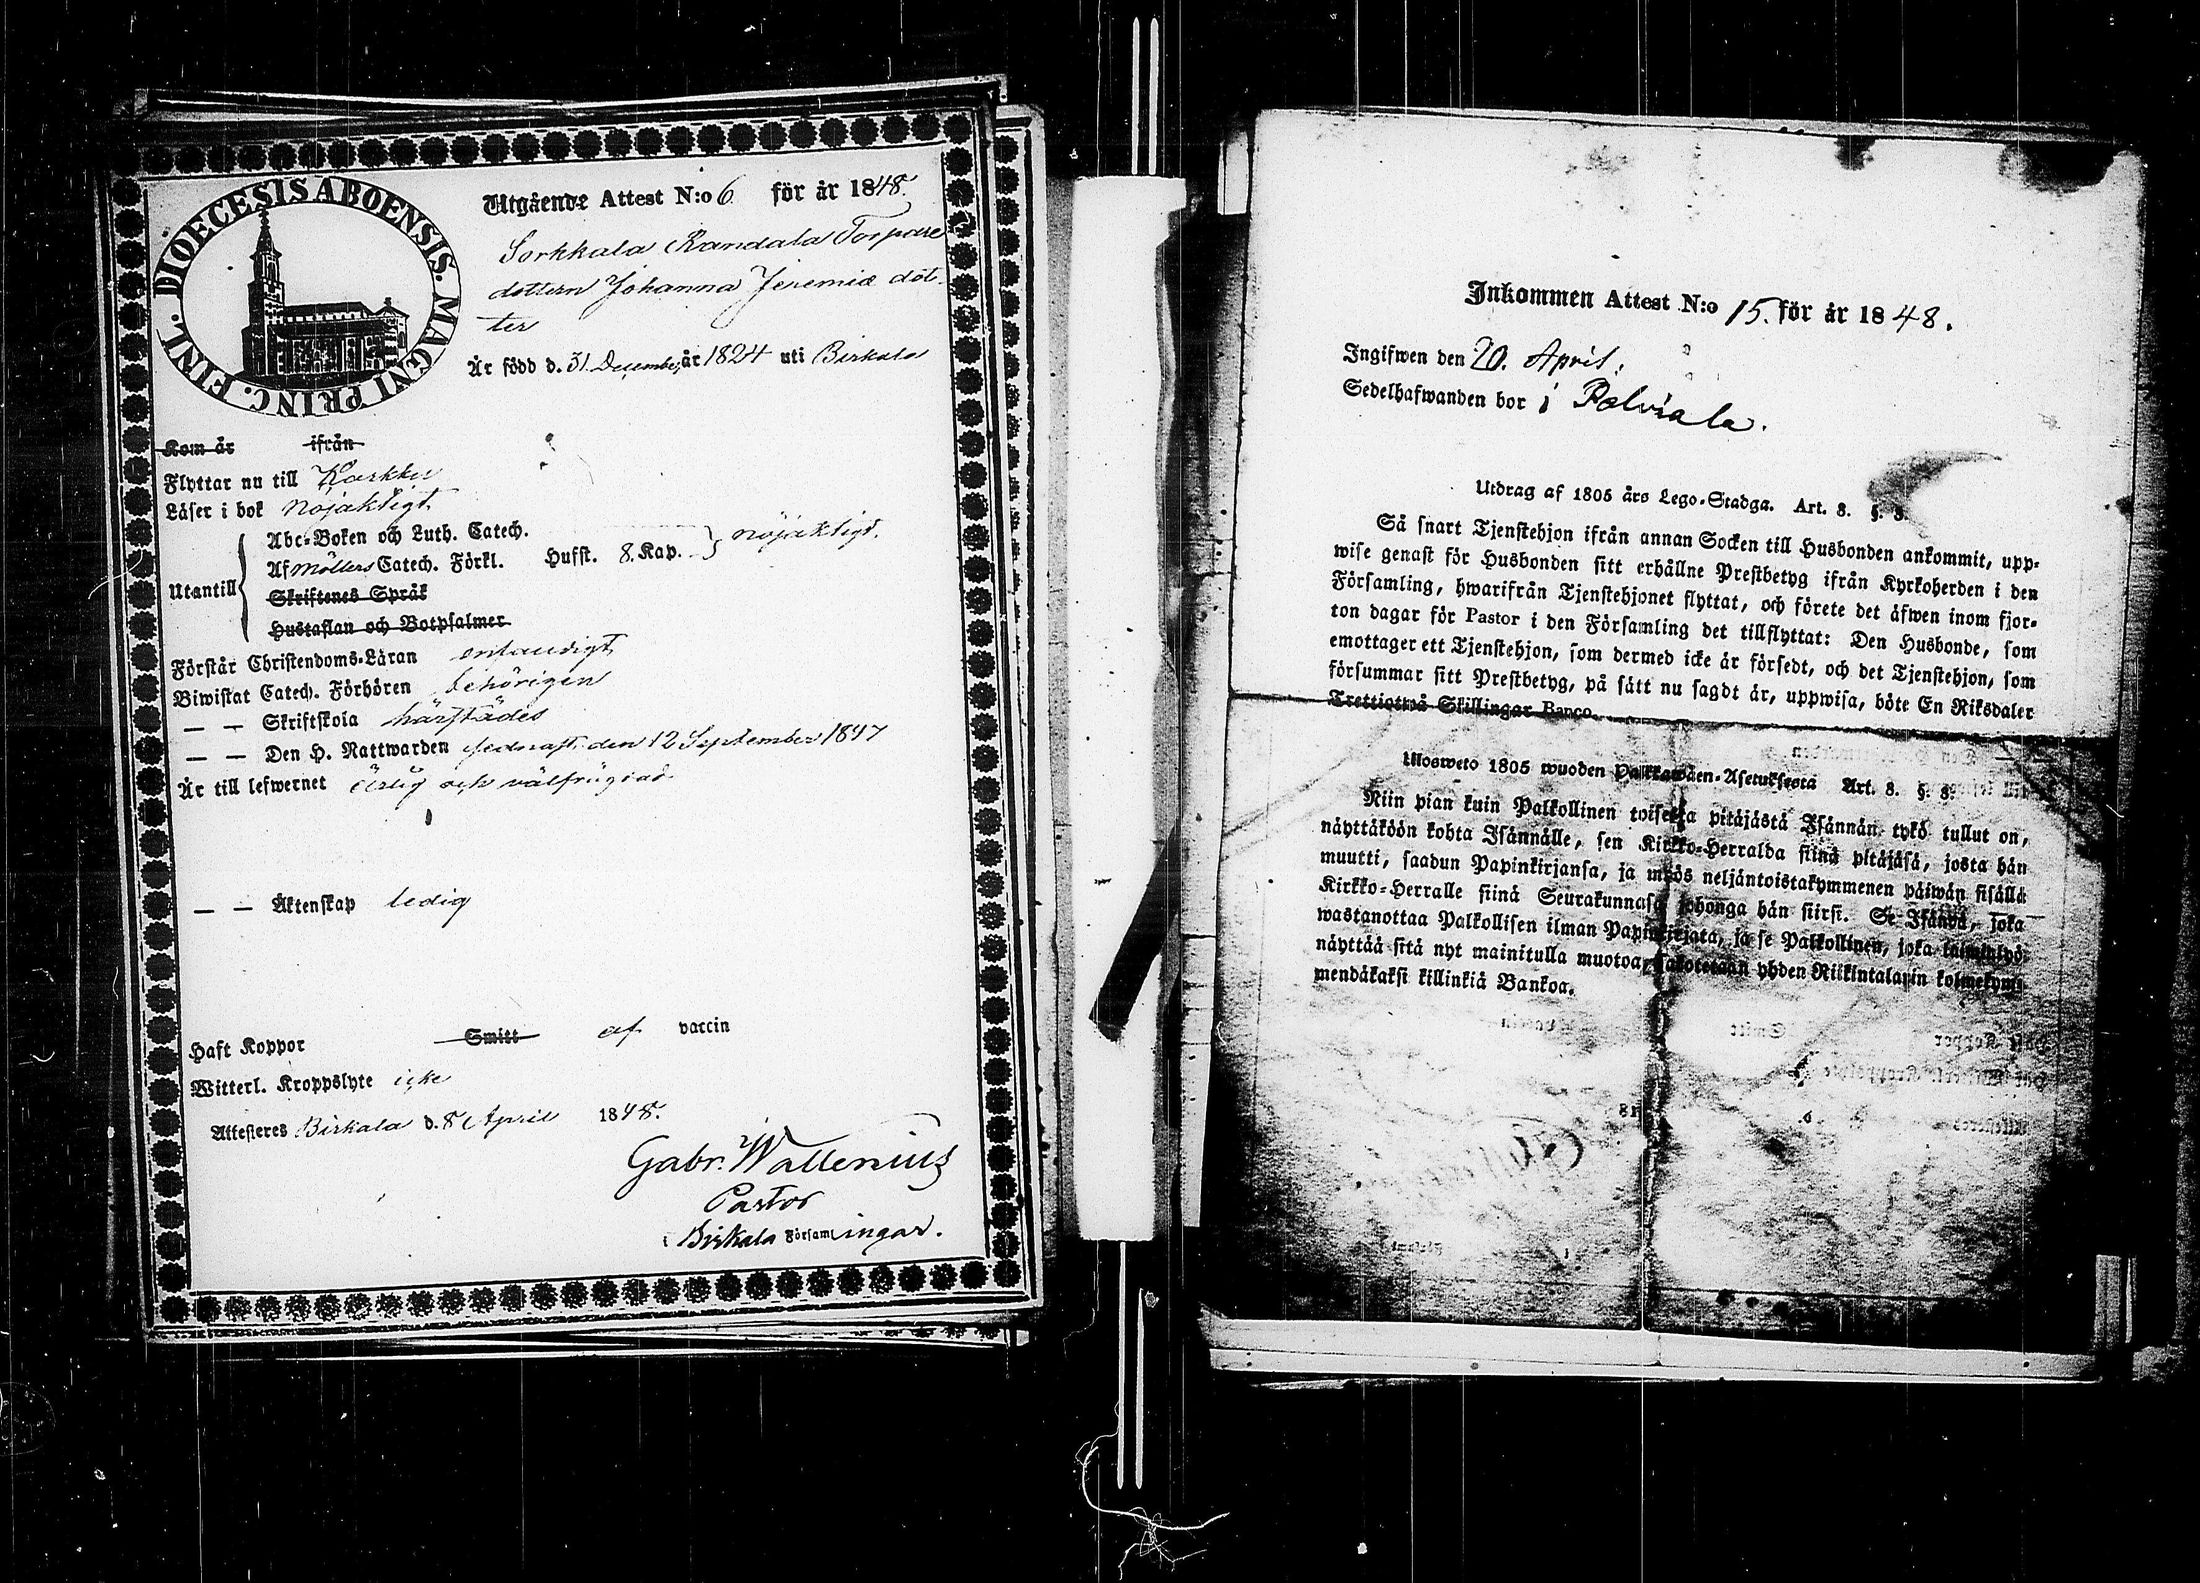 DIOECESIS ABOENSIS. MAGNI PRINC. FINL.
Utgående Attest N:o 6 för år 1848.
Sorkkala Randala Torpare
dottern Johanna Jeremiæ döt-
ter
Är född d. 31 December år 1824 uti Birkala
Kom år ifrån
Flyttar nu till Karkku
Läser i bok nöjaktigt
Utantill
Abc-Boken och Luth. Catech.
Af Möllers Catech. Förkl. Husst. 8. Kap. nöjaktigt.
Skriftenes Språk
Hustaflan och Botpsalmer
Förstår Christendoms-Läran enfaldigt
Biwistat Catech. Förhören behörigen
— — Skriftskola härstädes
— — Den H. Nattwarden sednast den 12 September 1847
Är till lefwernet ärlig och välfrägdad
— — Äktenskap ledig
Haft Koppor Smitt af vaccin
Witterl. Kroppslyte icke
Attesteres Birkala d. 8 April 1848.
Gabr. Wallenius
Pastor
i Birkala Församlingar.
Inkommen Attest N:o 15. för år 1848.
Ingifwen den 20. April.
Sedelhafwanden bor i Palviala.
Utdrag af 1805 års Lego-Stadga. Art. 3. §. 3.
Så snart Tjenstehjon ifrån annan Socken till Husbonden ankommit, upp-
wise genast för Husbonden sitt erhållne Prestbetyg ifrån Kyrkoherden i den
Församling, hwarifrån Tjenstehjonet flyttat, och förete det äfwen inom fjor-
ton dagar för Pastor i den Församling det tillflyttat: Den Husbonde, som
emottager ett Tjenstehjon, som dermed icke är försedt, och det Tjenstehjon, som
försummar sitt Prestbetyg, på sätt nu sagdt är, uppwisa, böte En Riksdaler
Trettiotwå Skillingar Banco.
Ulosweto 1805 wuoden Palkkawäen-Asetuksesta Art. 3. §. 3.
Niin pian kuin Palkollinen toisesta pitäjästä Isännän tykö tullut on,
näyttäköön kohta Isännälle, sen Kirkko-Herralda siinä pitäjäsä, josta hän
muutti, saadun Papinkirjansa, ja myös neljäntoistakymmenen päiwän sisällä
Kirkko-Herralle siinä Seurakunnasa johonga hän siirsi. Se Isändä, joka
wastanottaa Palkollisen ilman Papinkirjata, ja se Palkollinen, joka laiminlyö
näyttää sitä nyt mainitulla muotoa, sakotetaan yhden Riikintalarin kolmekym-
mendäkaksi killinkiä Bankoa.